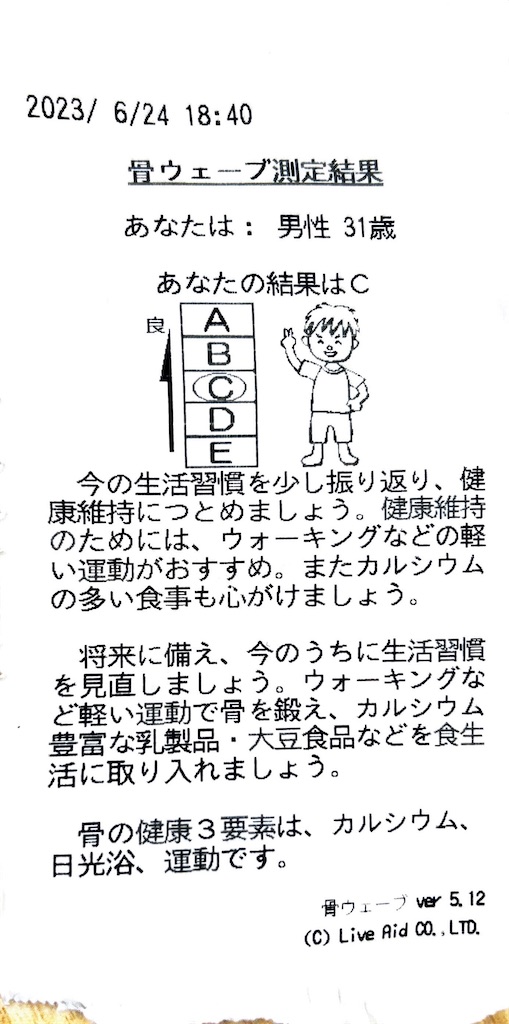 2023/ 6/24 18:40
骨ウェーブ測定結果
あなたは： 男性 31歳
あなたの結果はC
良
A
B
C
D
E
今の生活習慣を少し振り返り、健
康維持につとめましょう。健康維持
のためには、ウォーキングなどの軽
い運動がおすすめ。またカルシウム
の多い食事も心がけましょう。
将来に備え、今のうちに生活習慣
を見直しましょう。ウォーキングな
ど軽い運動で骨を鍛え、カルシウム
豊富な乳製品・大豆食品などを食生
活に取り入れましょう。
骨の健康３要素は、カルシウム、
日光浴、運動です。
骨ウェーブ ver 5.12
(C) Live Aid CO.,LTD.